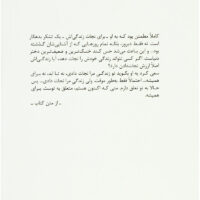 کاملاً مطمئن بود که به او ــ برای نجات زندگی‌اش ــ یک تشکر بدهکار
است. نه فقط دیروز، بلکه تمام روزهایی که از آشنایی‌شان گذشته
بود. و این باعث می‌شد حس کند خنگ‌ترین و ضعیف‌ترین دختر
دنیاست. اگر کسی نتواند زندگی خودش را نجات دهد، آیا زندگی‌اش
اصلاً ارزش نجات‌دادن دارد؟
سعی کرد به او بگوید تو زندگی مرا نجات دادی، نه تا ابد، نه برای
همیشه، احتمالاً فقط به‌طور موقت. ولی زندگی مرا نجات دادی، پس
حالا به تو تعلق دارم. منی که اکنون هستم، متعلق به توست برای
همیشه.
ــ از متن کتاب ــ